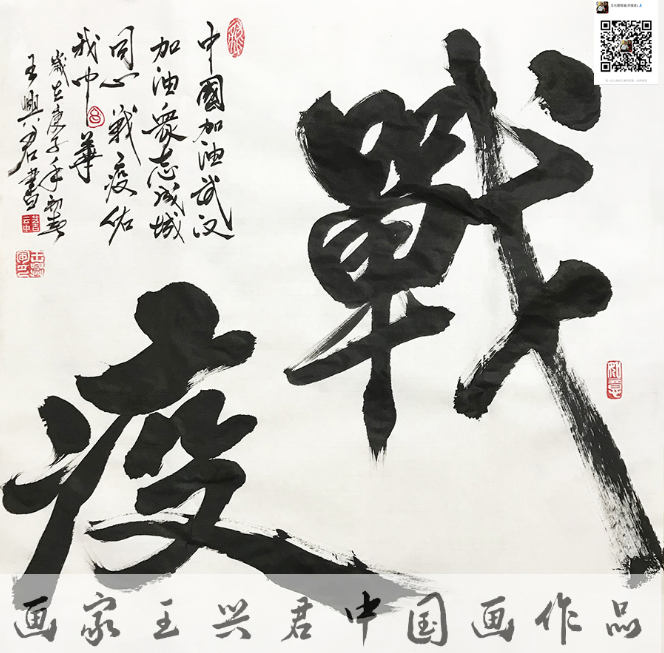 戰疫
中國加油武汉
加油衆志成城
同心戰疫佑
我中華
歲在庚子年初春
王興君書
如意
画家王兴君中国画作品